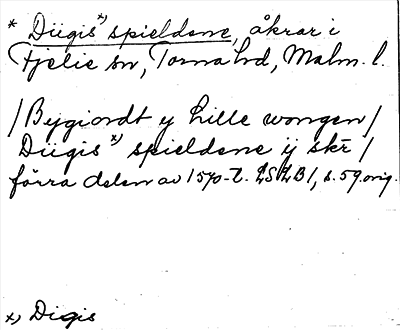 * Diigis x) spieldene, åkrar i
Fjelie sn, Torna hd, Malm. l.
/Bygiordt y Lille wongen/
Diigis x) spieldene ij skr̄ /
förra delen av 1570-t. LSLB 1, s. 59 orig.
x) Digis